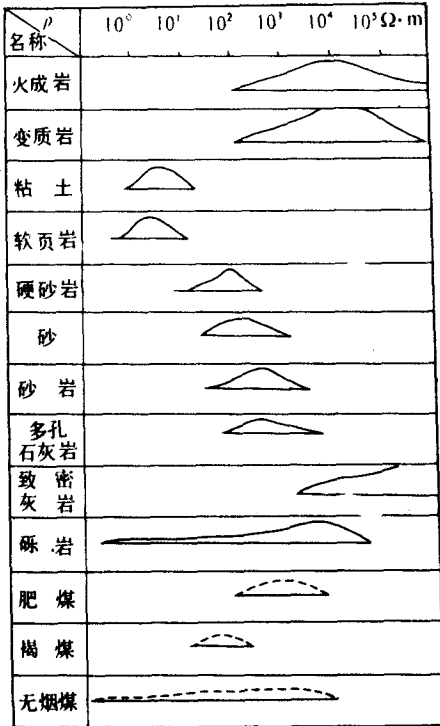 ρ
名称
10⁰ 10¹ 10² 10³ 10⁴ 10⁵Ω·m
火成岩
变质岩
粘 土
软页岩
硬砂岩
砂
砂 岩
多孔
石灰岩
致 密
灰 岩
砾 岩
肥 煤
褐 煤
无烟煤